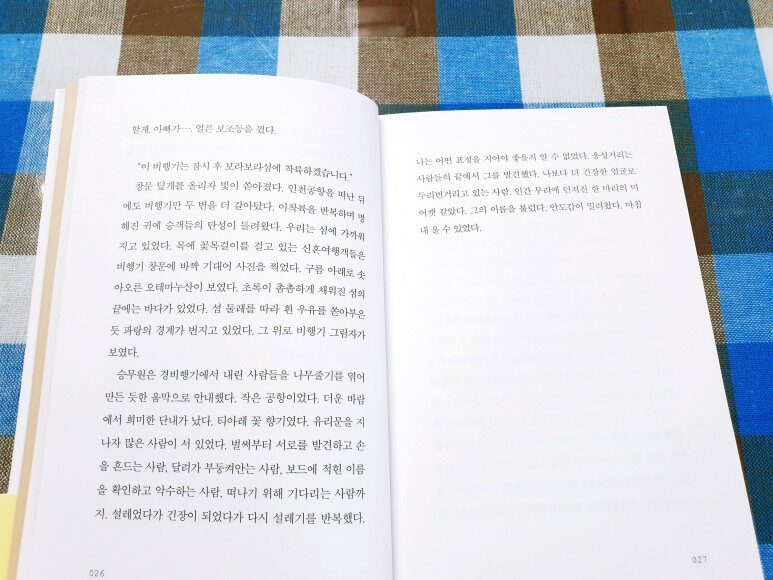 할게, 아빠가…. 얼른 보조등을 껐다.
"이 비행기는 잠시 후 보라보라섬에 착륙하겠습니다."
창문 덮개를 올리자 빛이 쏟아졌다. 인천공항을 떠난 뒤
에도 비행기만 두 번을 더 갈아탔다. 이착륙을 반복하며 멍
해진 귀에 승객들의 탄성이 들려왔다. 우리는 섬에 가까워
지고 있었다. 목에 꽃목걸이를 걸고 있는 신혼여행객들은
비행기 창문에 바짝 기대어 사진을 찍었다. 구름 아래로 솟
아오른 오테마누산이 보였다. 초록이 촘촘하게 채워진 섬의
끝에는 바다가 있었다. 섬 둘레를 따라 흰 우유를 쏟아부은
듯 파랑의 경계가 번지고 있었다. 그 위로 비행기 그림자가
보였다.
승무원은 경비행기에서 내린 사람들을 나무줄기를 엮어
만든 듯한 움막으로 안내했다. 작은 공항이었다. 더운 바람
에서 희미한 단내가 났다. 티아레 꽃 향기였다. 유리문을 지
나자 많은 사람이 서 있었다. 벌써부터 서로를 발견하고 손
을 흔드는 사람, 달려가 부둥켜안는 사람, 보드에 적힌 이름
을 확인하고 악수하는 사람, 떠나기 위해 기다리는 사람까
지. 설레었다가 긴장이 되었다가 다시 설레기를 반복했다.
026
나는 어떤 표정을 지어야 좋을지 알 수 없었다. 웅성거리는
사람들의 끝에서 그를 발견했다. 나보다 더 긴장한 얼굴로
두리번거리고 있는 사람. 인간 무리에 던져진 한 마리의 미
어캣 같았다. 그의 이름을 불렀다. 안도감이 밀려왔다. 마침
내 올 수 있었다.
027